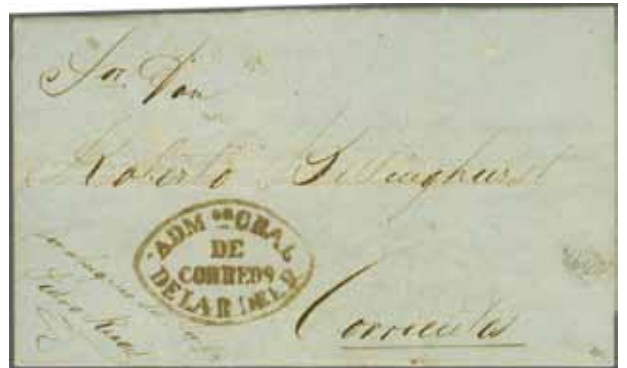 Sor. Don
Roberto Billinghurst
ADMon GRAL
DE
CORREOS
DE LA R DEL P
Corrientes